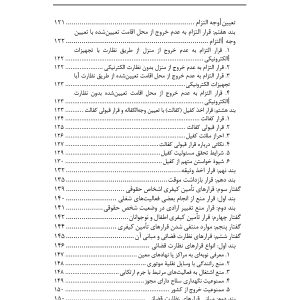 تعیین وجه التزام ۱۲۱
بند هفتم: قرار التزام به عدم خروج از محل اقامت تعیین‌شده با تعیین
وجه التزام ۱۲۲
۱. قرار التزام به عدم خروج از منزل از طریق نظارت با تجهیزات
الکترونیکی ۱۲۲
۲. قرار التزام به عدم خروج از منزل بدون نظارت الکترونیکی ۱۲۲
۳. قرار التزام به عدم خروج از محل اقامت تعیین‌شده از طریق نظارت با
تجهیزات الکترونیکی ۱۲۳
۴. قرار التزام به عدم خروج از محل اقامت تعیین‌شده بدون نظارت
الکترونیکی ۱۲۳
بند هشتم: قرار اخذ کفیل (کفالت) با تعیین وجه‌الکفاله و قرار قبولی کفالت
۱. قرار کفالت ۱۲۴
۲. قرار قبولی کفالت
۳. احراز ملائت کفیل
۴. نکاتی درباره قرار قبولی کفالت
۵. شرایط تحقق مسئولیت کفیل
۶. شیوه خواستن متهم از کفیل ۱۳۰
بند نهم: قرار اخذ وثیقه
بند دهم: قرار بازداشت موقت ۱۳۵
گفتار سوم: قرارهای تأمین کیفری اشخاص حقوقی ۱۳۹
بند اول: قرار منع از انجام بعضی فعالیت‌های شغلی ۱۴۰
بند دوم: قرار منع تغییر ارادی در وضعیت شخص حقوقی ۱۴۱
گفتار چهارم: قرار تأمین کیفری اطفال و نوجوانان ۱۴۲
گفتار پنجم: موارد منتفی شدن قرارهای تأمین کیفری ۱۴۴
گفتار ششم: قرارهای نظارت قضائی و مبانی آن ۱۴۵
بند اول: انواع قرارهای نظارت قضائی ۱۴۶
۱. معرفی نوبه‌ای به مراکز یا نهادهای معین ۱۴۷
۲. منع رانندگی با وسایل نقلیه موتوری ۱۴۸
۳. منع اشتغال به فعالیت‌های مرتبط با جرم ارتکابی ۱۴۸
۴. ممنوعیت نگهداری سلاح دارای مجوز
۵. ممنوعیت خروج از کشور ۱۵۰